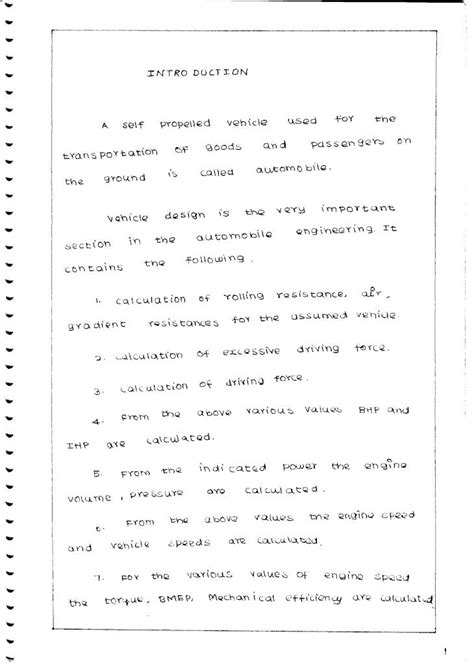 INTRODUCTION
A self propelled vehicle used for the
transportation of goods and passengers on
the ground is called automobile.
Vehicle design is the very important
section in the automobile engineering. It
contains the following.
1. calculation of rolling resistance, air,
gradient resistances for the assumed vehicle.
2. calculation of excessive driving force.
3. calculation of driving force.
4. From the above various values BHP and
IHP are calculated.
5. From the indicated power the engine
volume, pressure are calculated.
6. From the above values the engine speed
and vehicle speeds are calculated.
7. For the various values of engine speed
the torque, BMEP, Mechanical efficiency are calculated
1